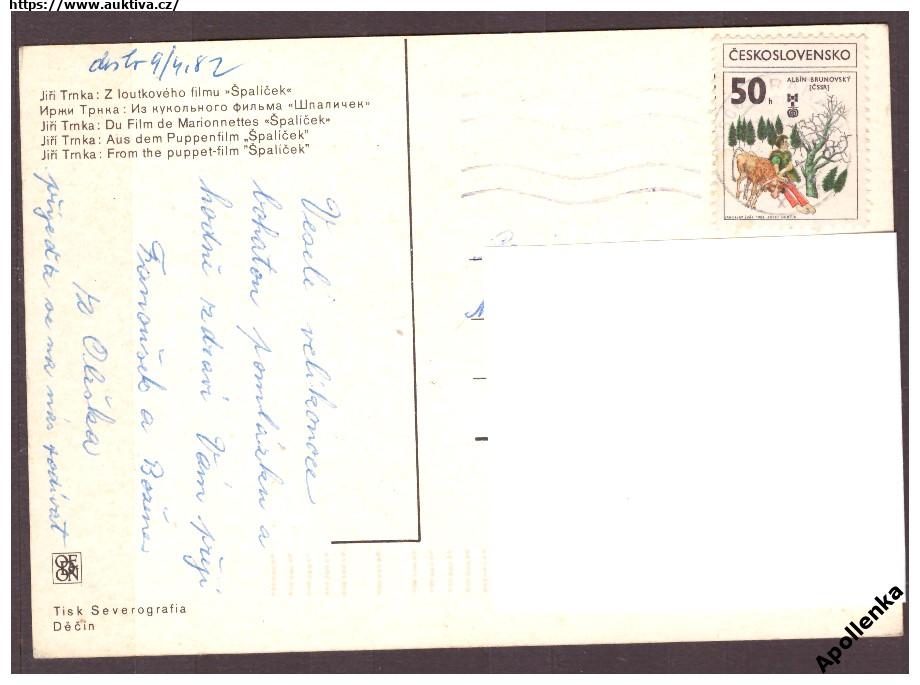 https://www.auktiva.cz/
9/4.82
Jiří Trnka: Z loutkového filmu »Špalíček«
Иржи Трнка: Из кукольного фильма «Шпаличек»
Jiří Trnka: Du Film de Marionnettes «Špalíček»
Jiří Trnka: Aus dem Puppenfilm „Špalíček"
Jiří Trnka: From the puppet-film "Špalíček"
ČESKOSLOVENSKO
50 h
ALBÍN BRUNOVSKÝ
(ČSSR)
Veselé velikonoce
bohatou pomlázku a
hodně zdraví Vám přejí
František a Božena
Oliška
přijeďte se na nás podívat
ODEON
Tisk Severografia
Děčín
Apollenka